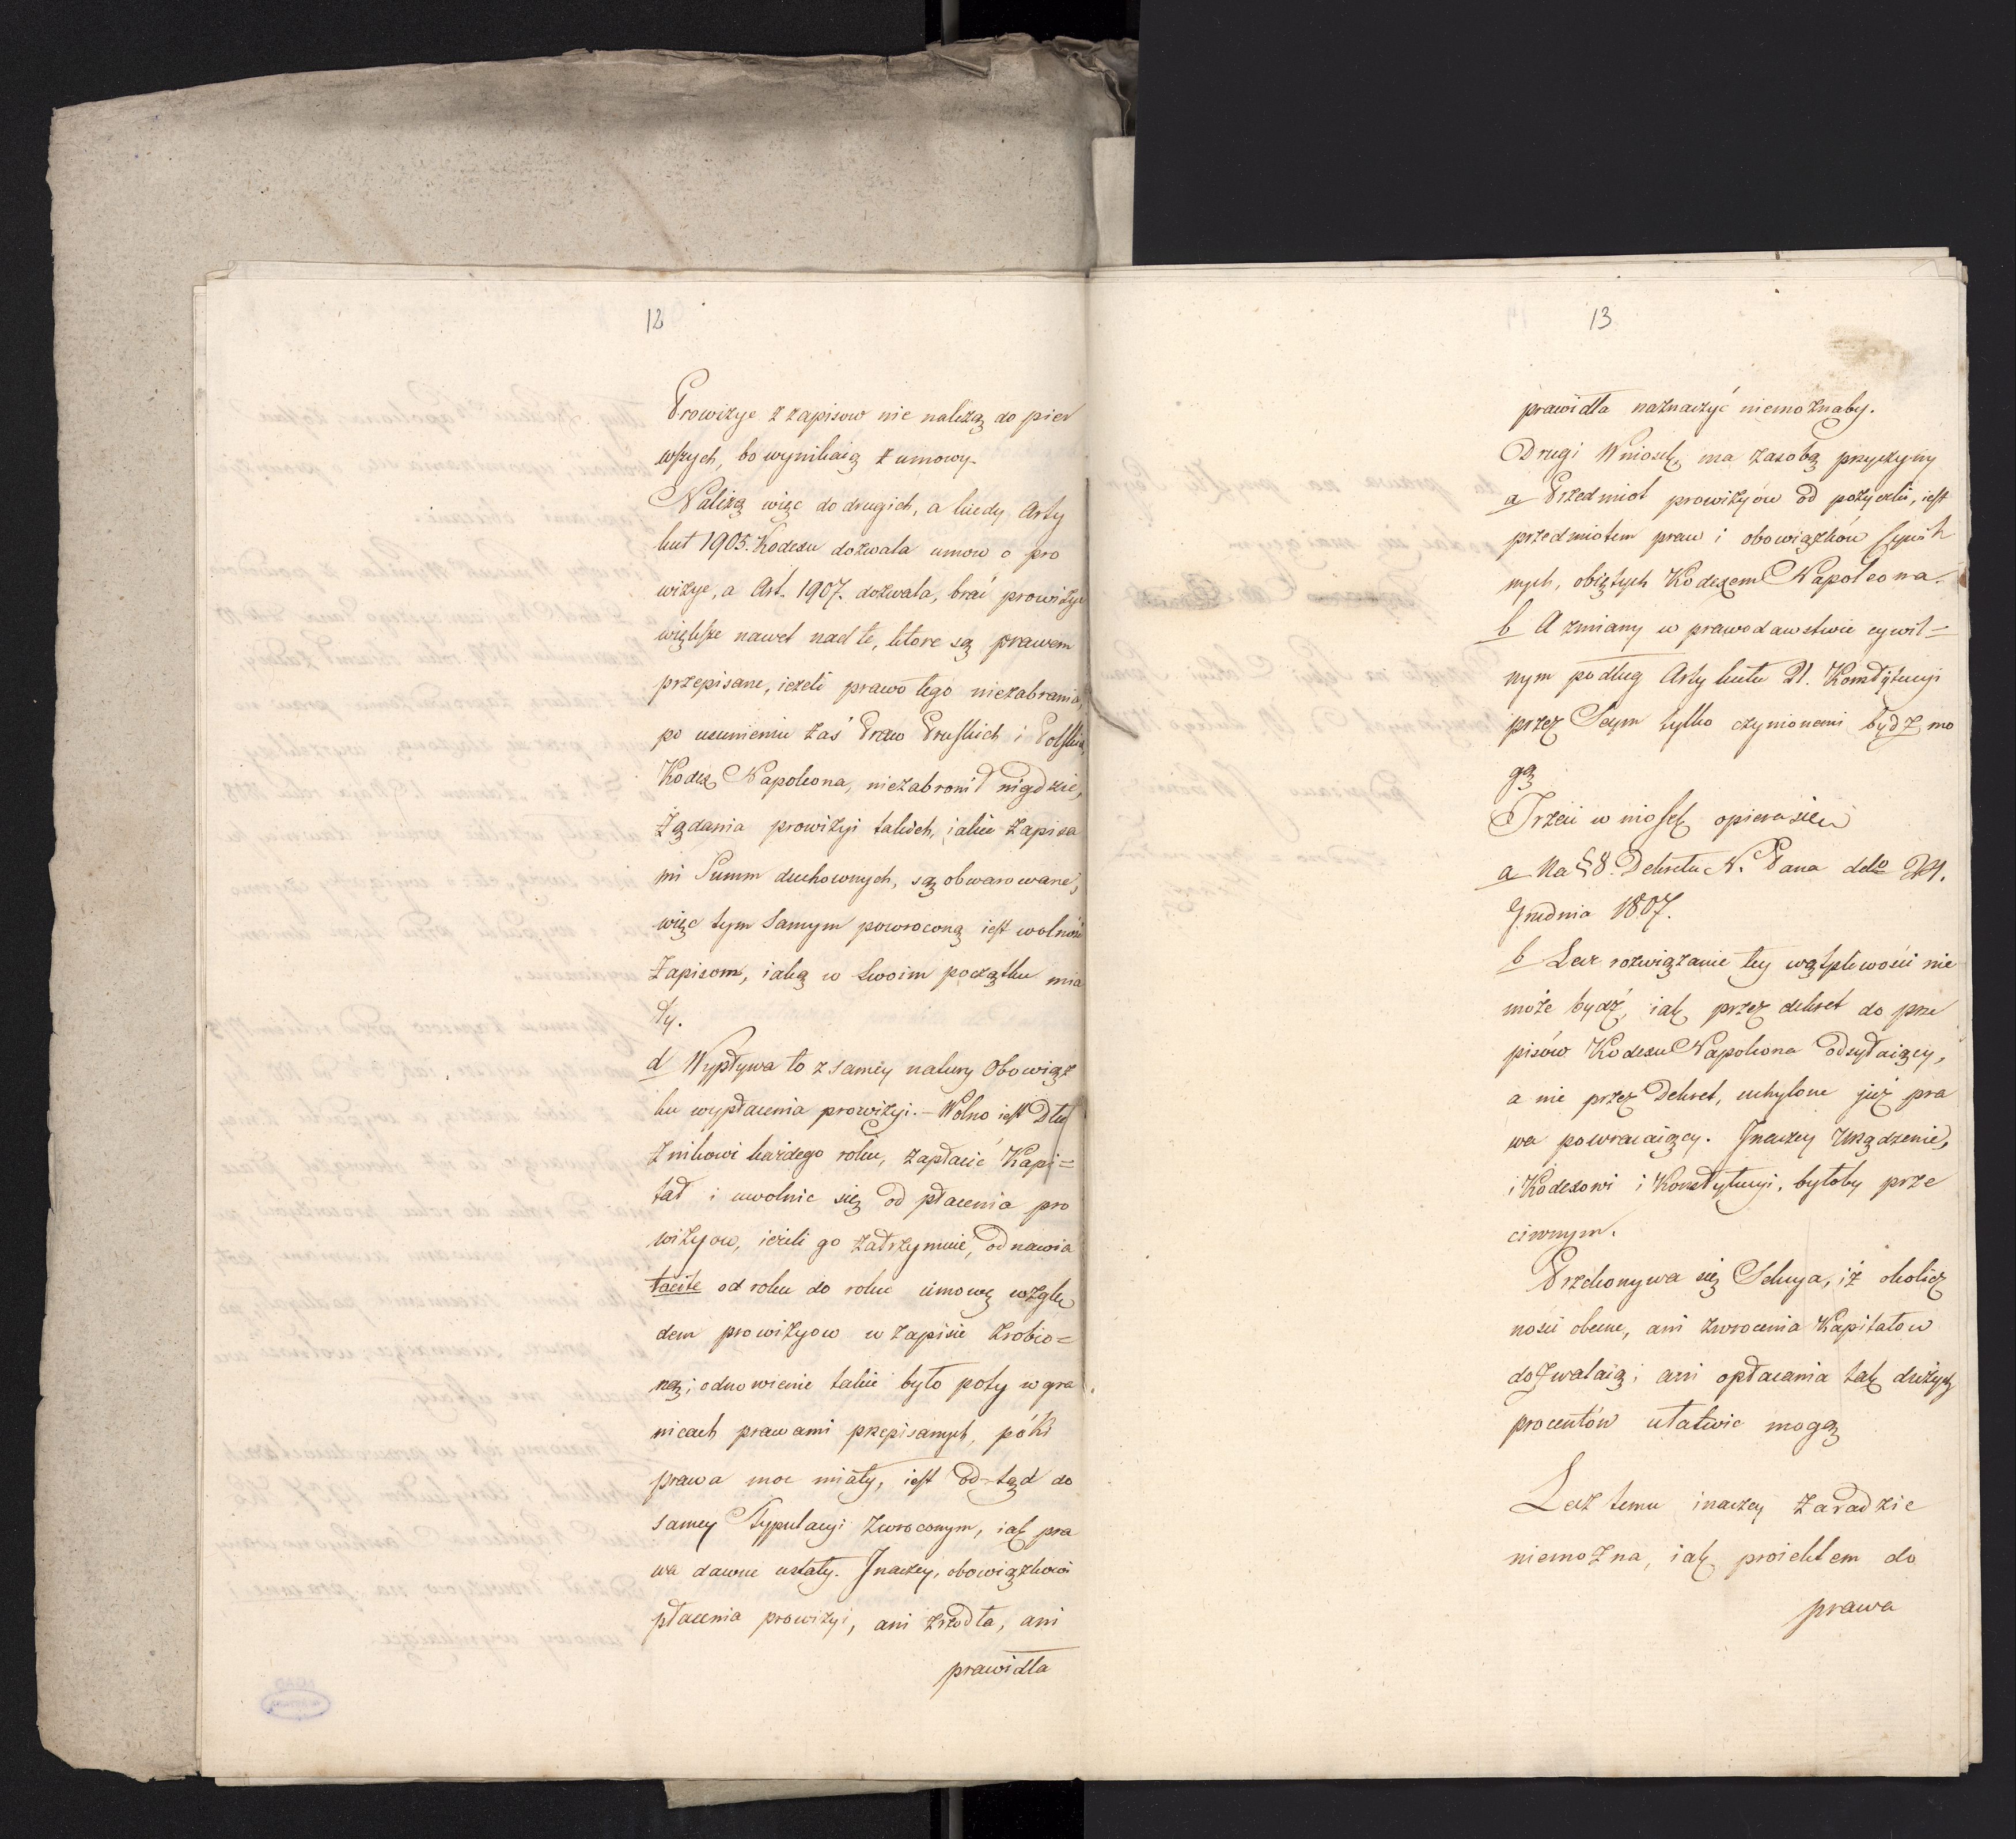 12
Prowizye z zapisow nie należą do pier
wszych, bo wynikaią z umowy.
Należą więc do drugich, a kiedy Arty
kuł 1905. Kodexu dozwala umow o pro
wizye, a Art. 1907. dozwala, brać prowizye
większe nawet nad te, ktore są prawem
przepisane, ieżeli prawo tego niezabrania,
po usunieniu zaś Praw Pruskich i Polskich,
Kodex Napoleona, niezabronił nigdzie,
żądania prowizyi takich, iakie zapisa
mi Summ duchownych, są obwarowane,
więc tym samym powroconą iest wolność
Zapisom, iaką w swoim początku mia
ły.
d Wypływa to z samey natury Obowiąz
ku wypłacenia prowizyi. – Wolno iest Dłu
żnikowi każdego roku, zapłacić Kapi=
tał i uwolnic się od płacenia pro
wizyow, ieżeli go zatrzymuie, odnawia
tacite od roku do roku umowę wzglę
dem prowizyow w zapisie zrobio=
ną; odnowienie takie było poty w gra
nicach prawami przepisanych, póki
prawa moc miały, iest od-tąd do
samey Stypulacyi zwroconym, iak pra
wa dawne ustały. Inaczey, obowiązkowi
płacenia prowizyi, ani źrzodła, ani
prawidła
13
prawidła naznaczyć niemożnaby.
Drugi Wniosek, ma za sobą przyczyny
a Przedmiot prowizyów od pożyczki, iest
przedmiotem praw i obowiązków Cywil
nych, obiętych Kodexem Napoleona.
b A zmiany w prawodawstwie cywil=
nym podług Artykułu 21. Konstytucyi
przez Seym tylko czynionemi bydź mo
gą
Trzeci wniosek opiera się
a Na § 8. Dekretu N. Pana dato 24.
Grudnia 1807.
b Lecz rozwiązanie tey wątpliwości nie
może bydź, iak przez dekret do prze
pisów Kodexu Napoleona odsyłaiący,
a nie przez Dekret, uchylone już pra
wa powracaiący. Inaczey Urządzenie,
i Kodexowi i Konstytucyi, byłoby prze
ciwnym.
Przekonywa się Sekcya, iż okolicz
ności obecne, ani zwrocenia Kapitałow
dozwalaią, ani opłacania tak dużych
procentów ułatwic mogą
Lecz temu inaczey zaradzic
niemożna, iak proiektem do
prawa